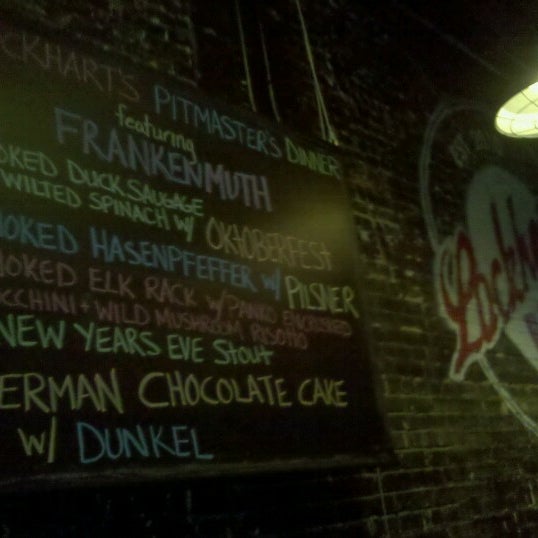 CKHART'S PITMASTER'S DINNER
featuring
FRANKENMUTH
OKED DUCK SAUSAGE
WILTED SPINACH W/ OKTOBERFEST
MOKED HASENPFEFFER W/ PILSNER
MOKED ELK RACK W/ PANKO ENCRUSTED
OCCHINI + WILD MUSHROOM RISOTTO
NEW YEARS EVE STOUT
ERMAN CHOCOLATE CAKE
W/ DUNKEL
EST. 20
Lockh